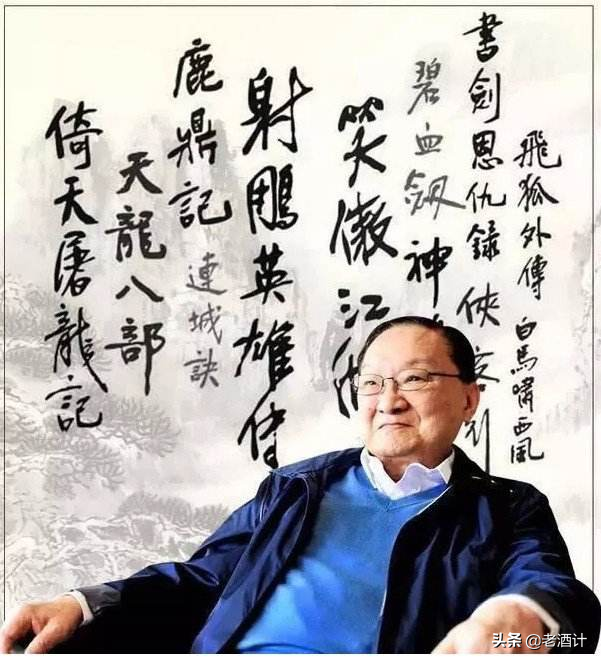 飛狐外傳
白馬嘯西風
書劍恩仇錄
俠客行
碧血劍
神
笑傲江湖
射鵰英雄傳
鹿鼎記
連城訣
天龍八部
倚天屠龍記
头条 @老酒计